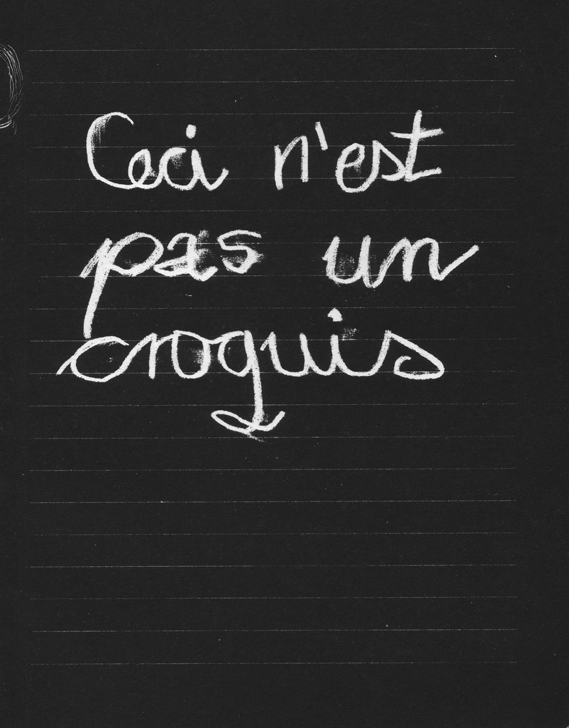 Ceci n'est
pas un
croquis